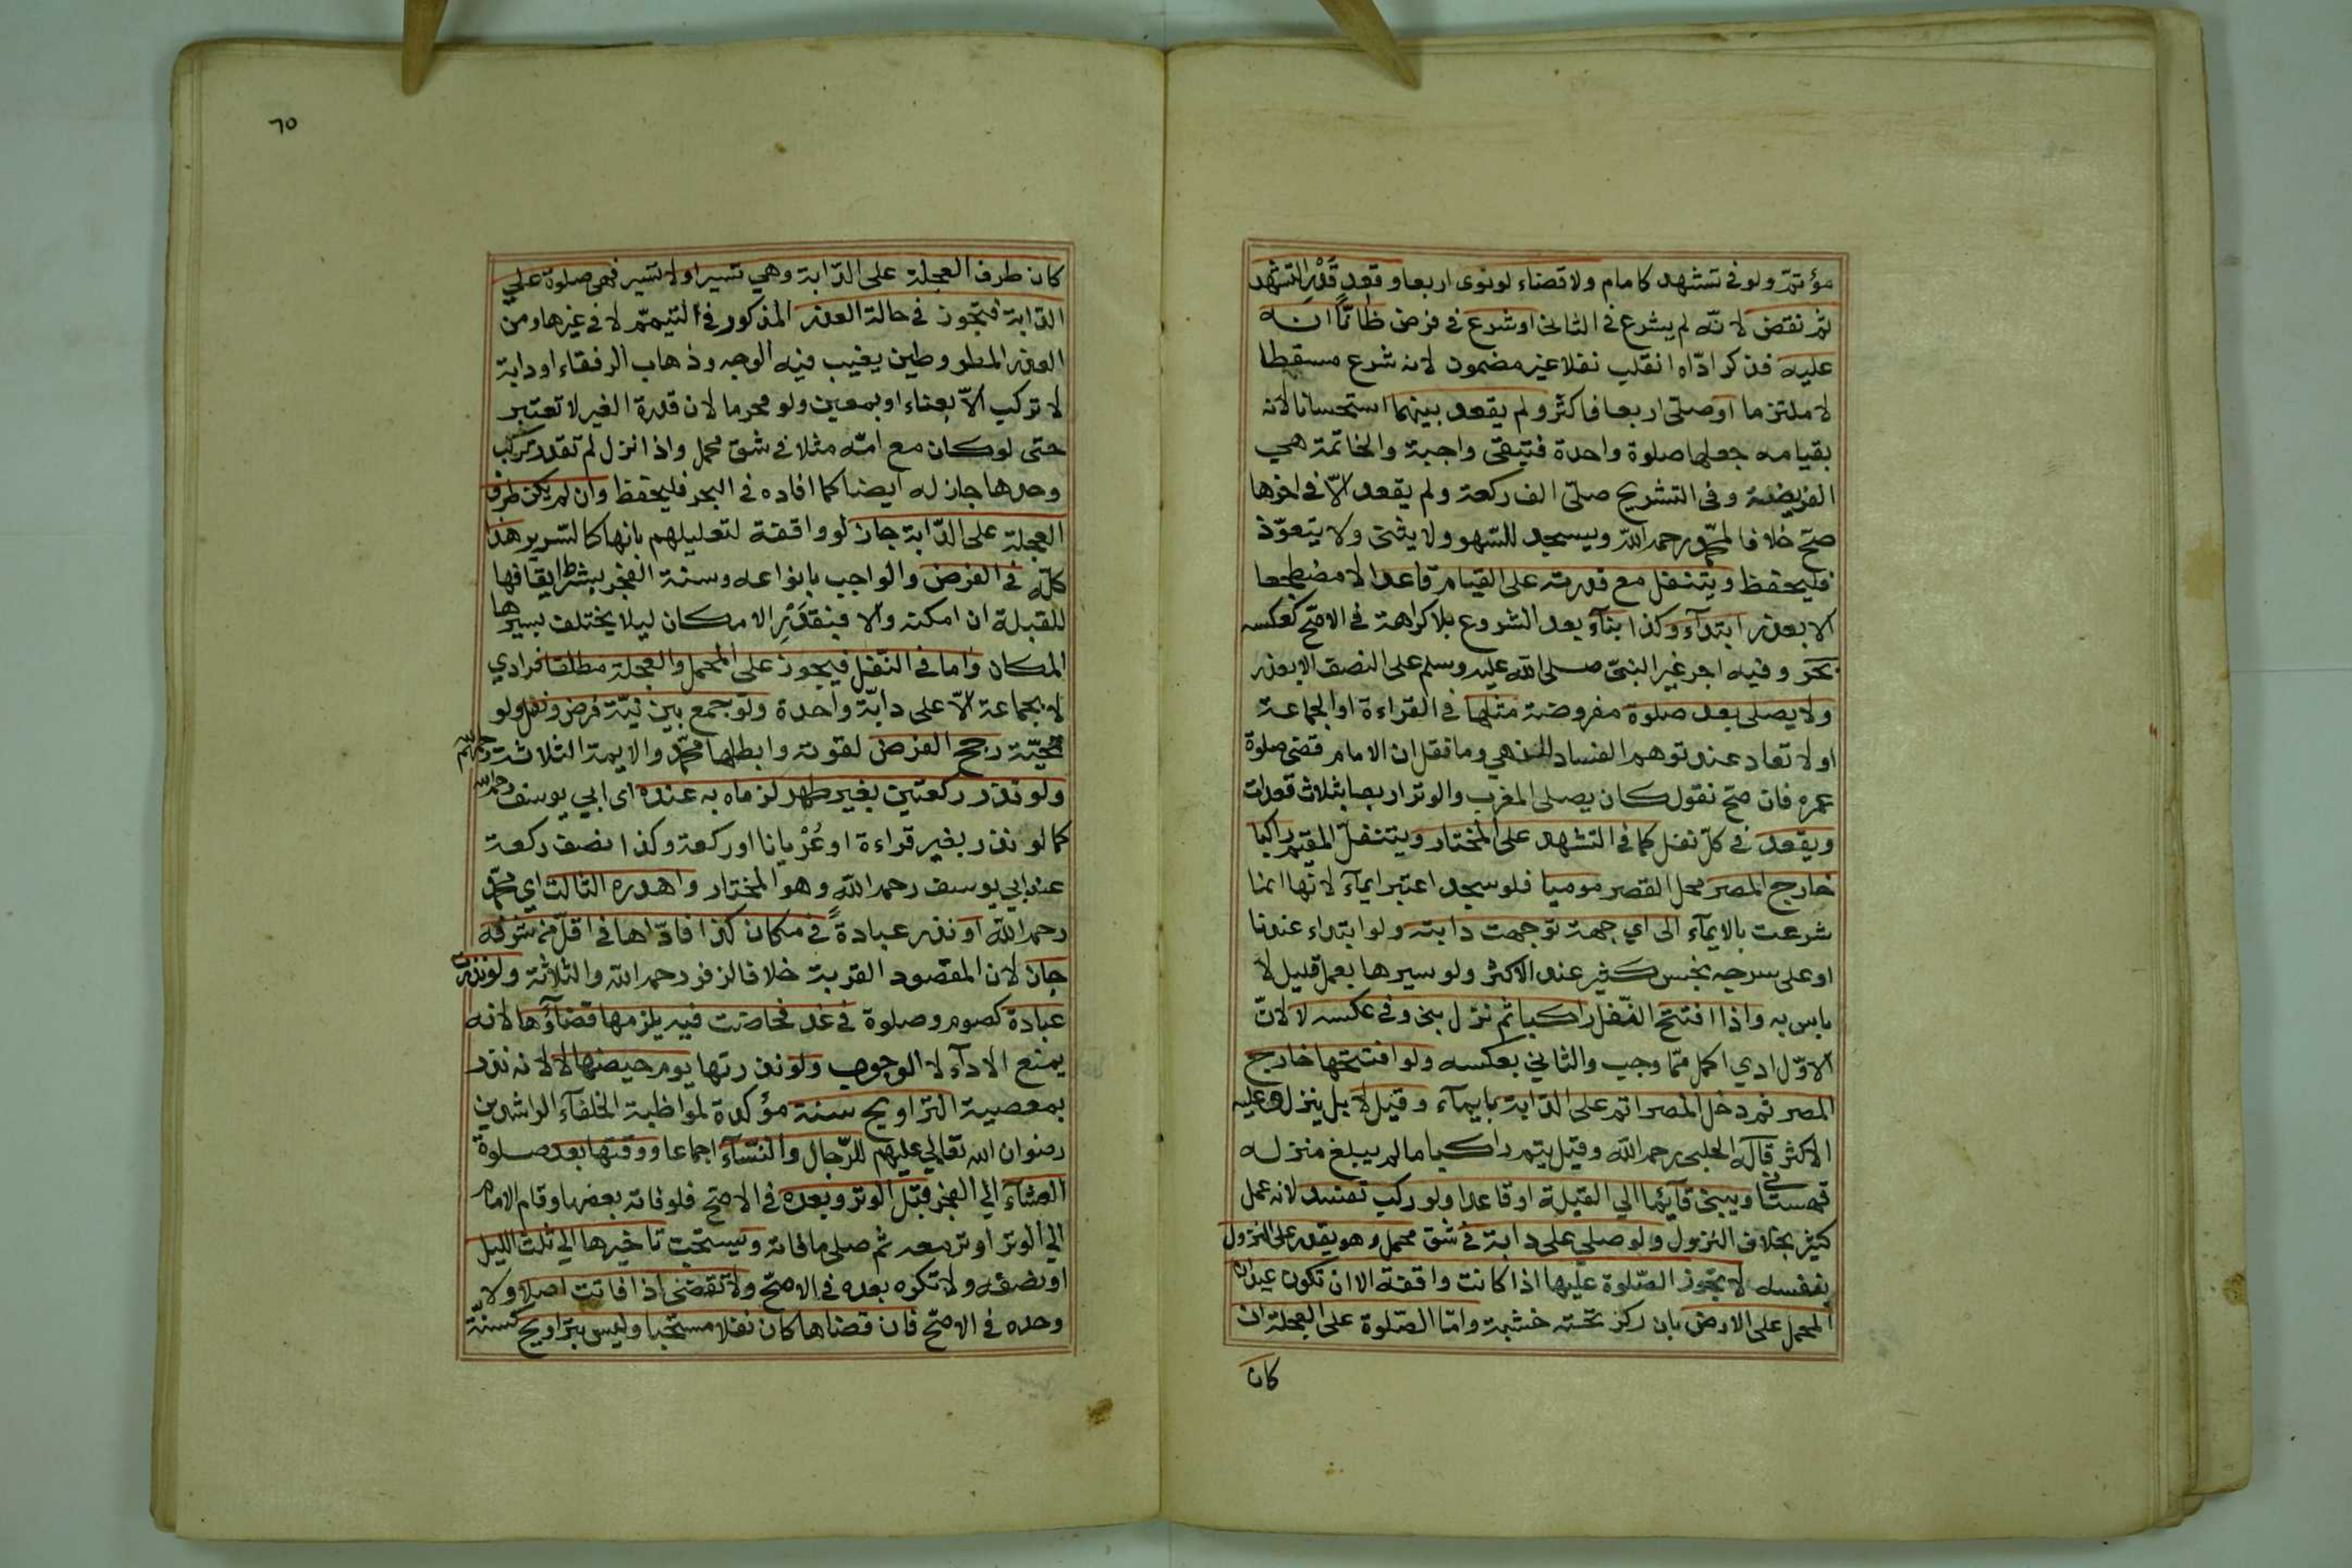 مؤتمّ ولو في تشهد كامام ولا قضاء لو نوى اربعا وقعد قَدْرَ التشهد
ثم نقض لانّه لم يشرع في الثاني او شرع في فرض ظانّاً انه
عليه فذكر ادّاه انقلب نفلا غير مضمون لانه شرع مسقطا
لا ملتزما او صلى اربعا فاكثر ولم يقعد بينهما استحسانا لانه
بقيامه جعلها صلوة واحدة فتبقى واجبة والخاتمة هي
الفريضة وفي التشريح صلّى الف ركعة ولم يقعد الّا في اخرها
صحّ خلافا لمحمّد رحمه الله ويسجد للسّهو ولا يثني ولا يتعوّذ
فليحفظ ويتنفل مع قدرته على القيام قاعدا لا مضطجعا
الا بعذر ابتدآء وكذا بنآء بعد الشروع بلا كراهة في الاصحّ كعكسه
بحر وفيه اجر غير النبيّ صلى الله عليه وسلم على النصف الا بعذر
ولا يصلى بعد صلوة مفروضة مثلها في القراءة او الجماعة
او لا تعاد عند توهم الفساد للنهي وما نقل ان الامام قضى صلوة
عمره فان صحّ نقول كان يصلى المغرب والوتر اربعا بثلاث قعدات
ويقعد في كلّ نفل كما في التشهد على المختار ويتنفل المقيم راكبا
خارج المصر محل القصر موميا فلو سجد اعتبر ايمآء لانّها انما
شرعت بالايمآء الى اي جهة توجهت دابته ولو ابتداء عندنا
او على سرجه نجس كثير عند الاكثر ولو سيرها بعمل قليل لا
باس به واذا افتتح النّفل راكبا ثم نزل بنى وفي عكسه لا لانّ
الاوّل ادي اكمل ممّا وجب والثاني بعكسه ولو افتتحها خارج
المصر ثم دخل المصر اتم على الدّابة بايمآء وقيل لا بل ينزل وعليه
الاكثر قاله الحلبي رحمه الله وقيل يتم راكبا ما لم يبلغ منزله
قهستاني ويبني قآئما الي القبلة او قاعدا ولو ركب تفسد لانه عمل
كثير بخلاف النزول ولو صلى على دابة في شق محمل وهو يقدر على النزول
بنفسه لا تجوز الصّلوة عليها اذا كانت واقفة الا ان تكون عيدان
المحمل على الارض بان ركز تحته خشبة وامّا الصّلوة على العجلة ان
كان
٦٥
كان طرف العجلة على الدّابة وهي تسير او لا تسير فهي صلوة علي
الدّابة فتجوز في حالة العذر المذكور في التيمّم لا في غيرها ومن
العذر المطر وطين يغيب فيه الوجه وذهاب الرفقاء او دابة
لا تركب الّا بعناء او بمعين ولو محرما لان قدرة الغير لا تعتبر
حتى لو كان مع امّه مثلا في شق محمل واذا نزل لم تقدر تركب
وحدها جاز له ايضا كما افاده في البحر فليحفظ وان لم يكن طرف
العجلة على الدّابة جاز لو واقفة لتعليلهم بانها كالسّرير هذا
كلّه في الفرض والواجب بانواعه وسنة الفجر بشرط ايقافها
للقبلة ان امكنه والا فبقَدْرِ الامكان ليلا يختلف بسيرها
المكان واما في النّفل فيجوز على المحمل والعجلة مطلقا فرادي
لا بجماعة الّا على دابّة واحدة ولو جمع بين نيّة فرض ونفل ولو
تحيّة رجح الفرض لقوته وابطلها محمّد والايمة الثلاثة رحمهم الله
ولو نذر ركعتين بغير طهر لزماه به عنده اى ابي يوسف رحمه الله
كما لو نذر بغير قراءة او عُرْيانا او ركعة وكذا نصف ركعة
عند ابي يوسف رحمه الله وهو المختار واهدره الثالث اي محمّد
رحمه الله او نذر عبادةً في مكان كذا فادّاها في اقلّ من شرفه
جاز لان المقصود القربة خلافا لزفر رحمه الله والثلاثة ولو نذرت
عبادة كصوم وصلوة في غد فحاضت فيه يلزمها قضآؤها لانه
يمنع الادآء لا الوجوب ولو نذرتها يوم حيضها لا لانه نذر
بمعصية التراويح سنة مؤكدة لمواظبة الخلفآء الراشدين
رضوان الله تعالي عليهم للرّجال والنّسآء اجماعا ووقتها بعد صلوة
العشآء الي الفجر قبل الوتر وبعده في الاصحّ فلو فاته بعضها وقام الامام
الي الوتر اوتر معه ثم صلى ما فاته ويستحبّ تاخيرها الي ثلث الليل
او نصفه ولا تكره بعده في الاصحّ ولا تقضى اذا فاتت اصلا ولا
وحده في الاصحّ فان قضاها كان نفلا مستحبا وليس بتراويح كسنّة